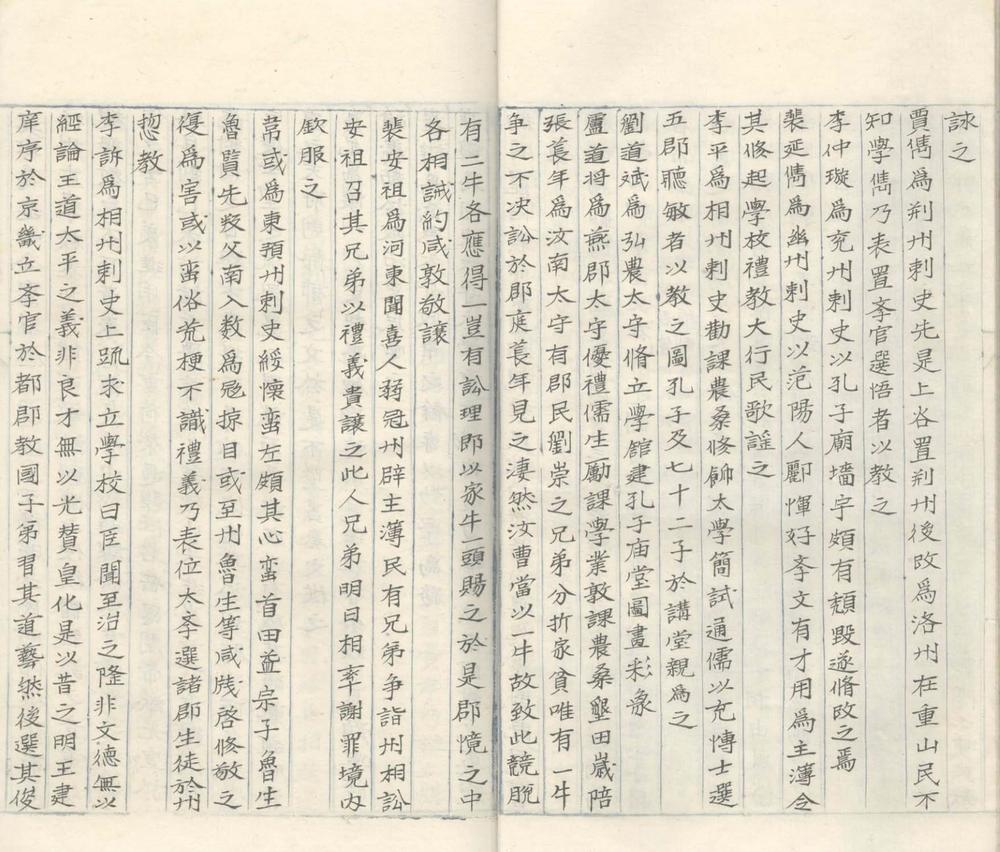 詠之
賈儁爲荆州剌史先是上洛置荆州後改爲洛州在重山民不
知學儁乃表置斈官選悟者以教之
李仲璇爲兖州剌史以孔子廟墻宇頗有頽毀遂脩改之焉
裴延儁爲幽州剌史以范陽人酈惲好斈文有才用爲主簿令
其修起學校禮教大行民歌謡之
李平爲相州剌史勸課農桑修飾太學簡試通儒以充愽士選
五郡聽敏者以教之圖孔子及七十二子於講堂親爲之
劉道斌爲弘農太守脩立學館建孔子庙堂圖畫形象
盧道将爲燕郡太守優禮儒生勵課學業敦課農桑墾田歲陪
張萇年爲汝南太守有郡民劉崇之兄弟分折家貧唯有一牛
争之不决訟於郡庭萇年見之淒然汝曹當以一牛故致此競脫
有二牛各應得一豈有訟理即以家牛一頭賜之於是郡境之中
各相誡約咸敦敬讓
裴安祖爲河東聞喜人弱冠州辟主簿民有兄弟争詣州相訟
安祖召其兄弟以禮義貴讓之此人兄弟明日相率謝罪境内
欽服之
常或爲東預州剌史綏懷蛮左頗其心蛮首田益宗子魯生
魯賢先叛父南入数爲㓂掠目或至州魯生等咸牋啓修敬之
復爲害或以蛮俗荒梗不識禮義乃表位太斈選諸郡生徒於州
揔教
李訢爲相州剌史上䟽求立學校曰臣聞至治之隆非文德無以
經論王道太平之義非良才無以光賛皇化是以昔之明王建
庠序於京畿立斈官於都郡教國子弟習其道藝然後選其俊